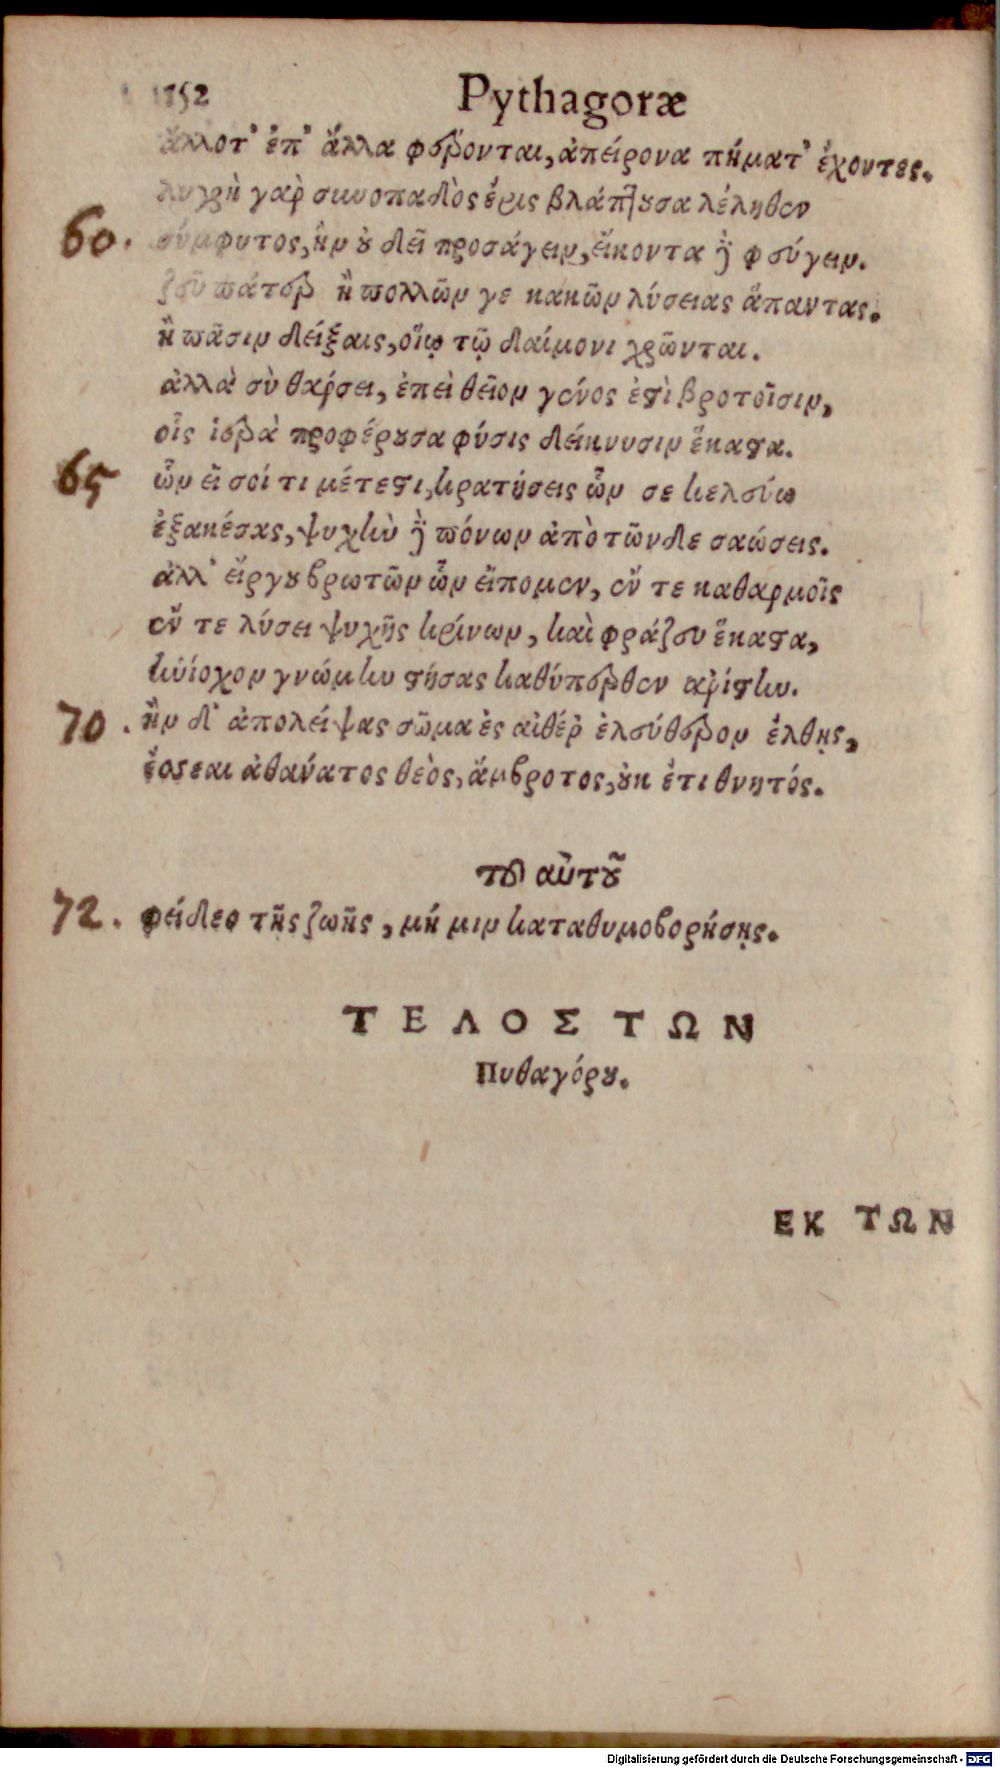 752 Pythagoræ
ἄλλοτ' ἐπ' ἄλλα φέρονται, ἀπείρονα πήματ' ἔχοντες.
λυγρὴ γαρ συνοπαδὸς ἔρις βλάπτουσα λέληθεν
60. σύμφυτος, ἣν οὐ δεῖ προσάγειν, εἴκοντα δὲ φεύγειν.
ζεῦ πάτερ ἢ πολλῶν γε κακῶν λύσειας ἅπαντας.
ἢ πᾶσιν δείξαις, οἵῳ τῷ δαίμονι χρῶνται.
ἀλλὰ σὺ θάρσει, ἐπεὶ θεῖον γένος ἐστὶ βροτοῖσιν,
οἷς ἱερὰ προφέρουσα φύσις δείκνυσιν ἕκαστα.
65 ὧν εἴ σοί τι μέτεστι, κρατήσεις ὧν σε κελεύω
ἐξακέσας, ψυχὴν δὲ πόνων ἀπὸ τῶνδε σαώσεις.
ἀλλ' εἴργου βρωτῶν ὧν εἴπομεν, ἔν τε καθαρμοῖς
ἔν τε λύσει ψυχῆς κρίνων, καὶ φράζευ ἕκαστα,
ἡνίοχον γνώμην στήσας καθύπερθεν ἀρίστην.
70. ἢν δ' ἀπολείψας σῶμα ἐς αἰθέρ ἐλεύθερον ἔλθῃς,
ἔσσεαι ἀθάνατος θεὸς, ἄμβροτος, οὐκ ἔτι θνητός.
τοῦ αὐτοῦ
72. φείδεο τῆς ζωῆς, μή μιν καταθυμοβορήσῃς.
ΤΕΛΟΣ ΤΩΝ
Πυθαγόρου.
ΕΚ ΤΩΝ
Digitalisierung gefördert durch die Deutsche Forschungsgemeinschaft - DFG